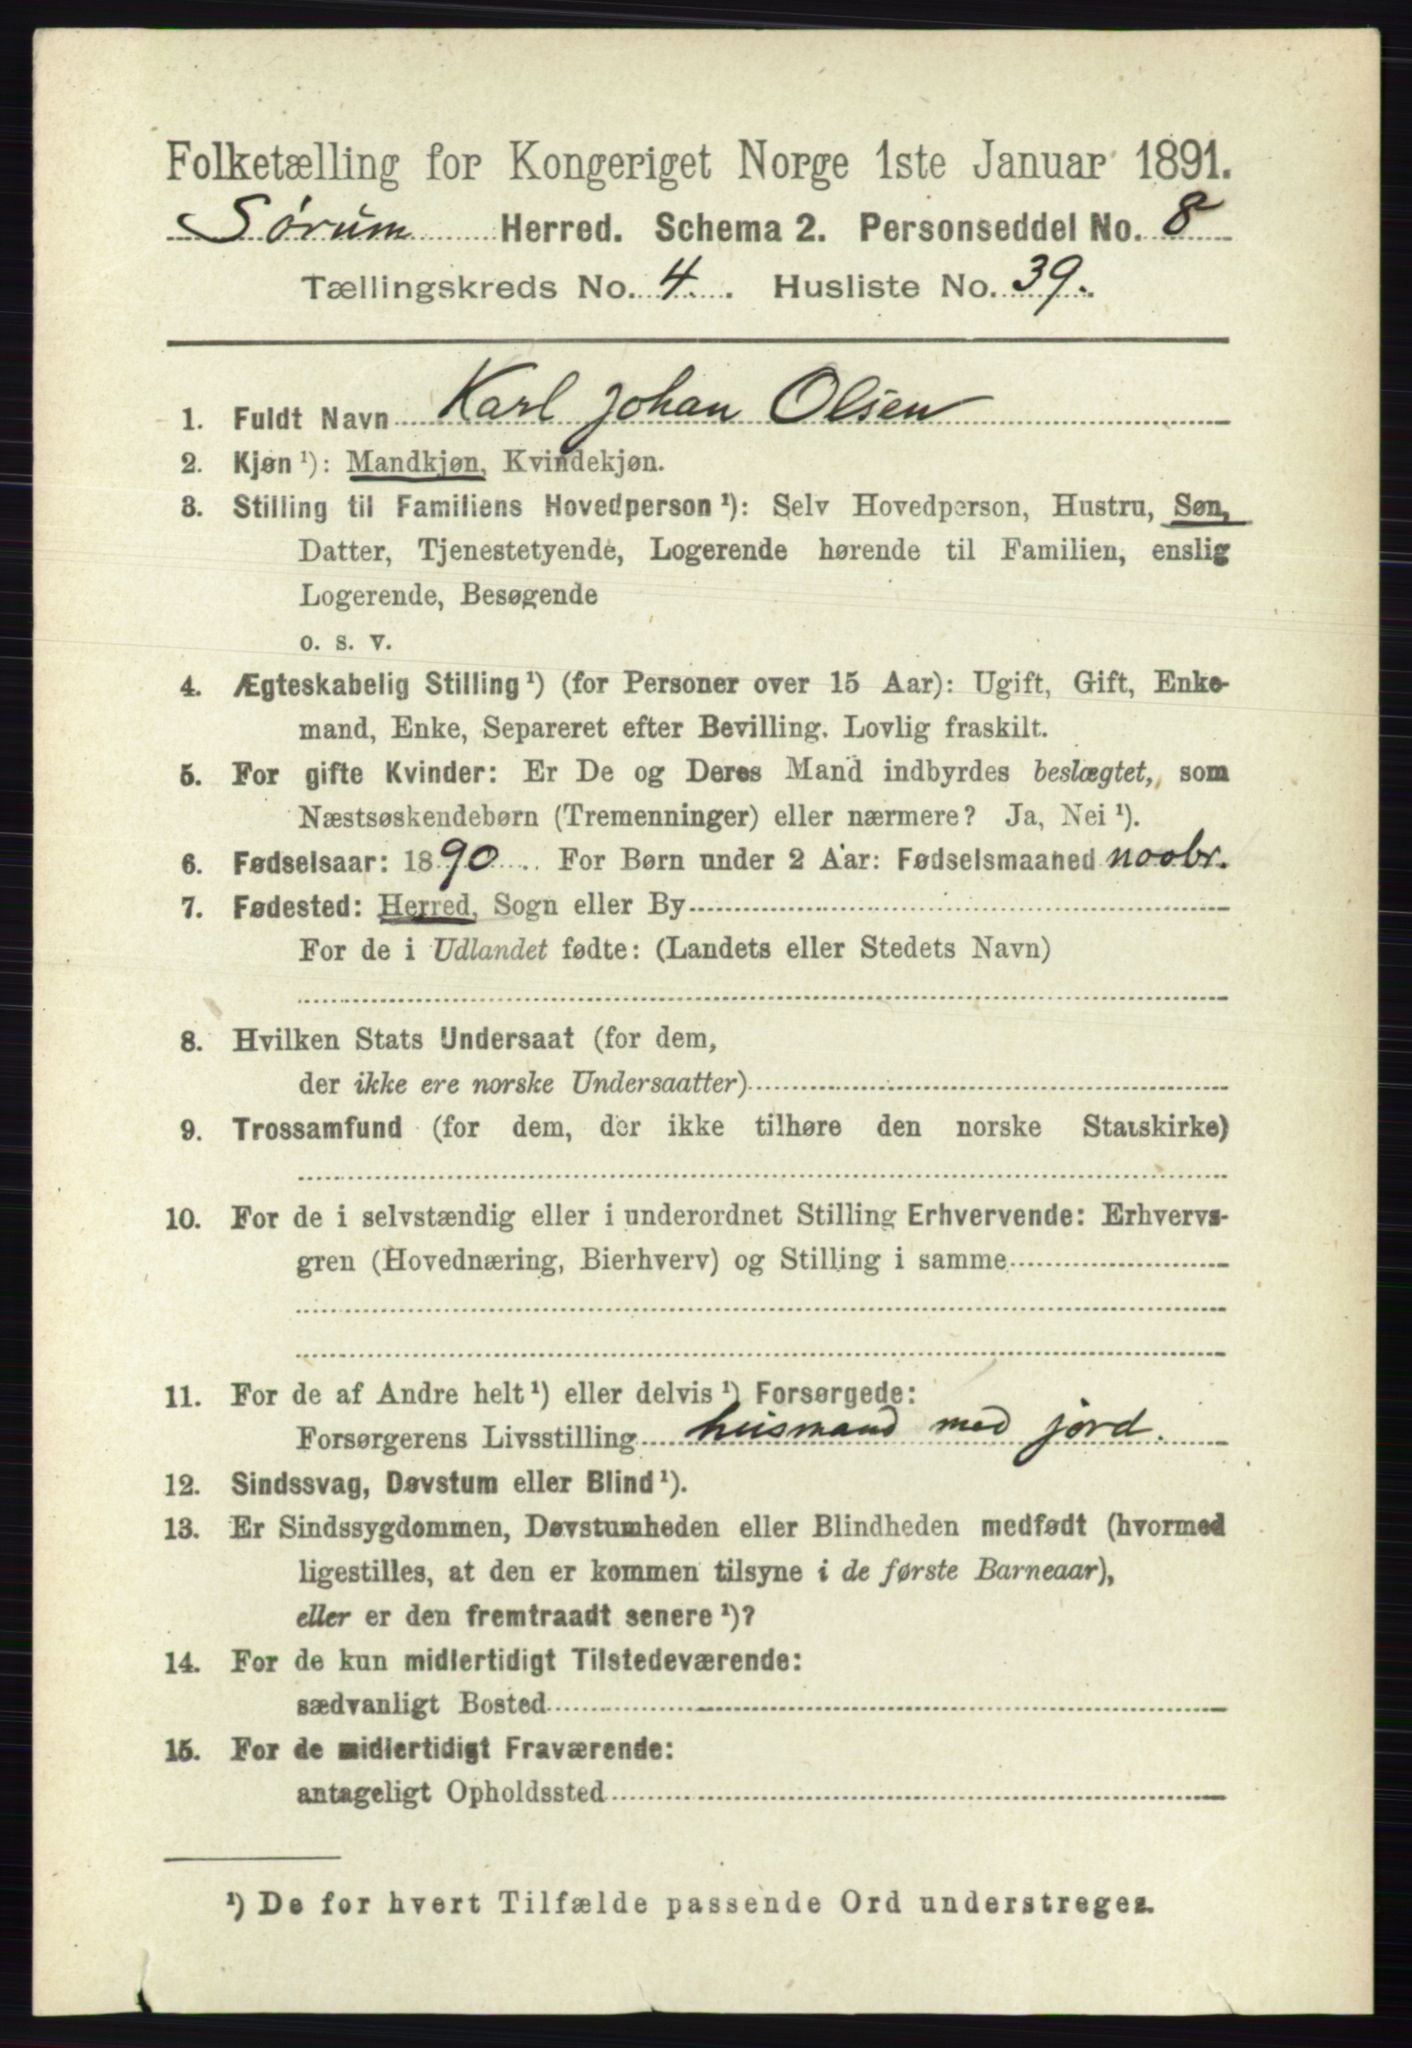 Folketælling for Kongeriget Norge 1ste Januar 1891.
Sørum Herred. Schema 2. Personseddel No. 8
Tællingskreds No. 4. Husliste No. 39.
1. Fuldt Navn Karl Johan Olsen
2. Kjøn ¹): Mandkjøn, Kvindekjøn.
3. Stilling til Familiens Hovedperson ¹): Selv Hovedperson, Hustru, Søn,
Datter, Tjenestetyende, Logerende hørende til Familien, enslig
Logerende, Besøgende
o. s. v.
4. Ægteskabelig Stilling ¹) (for Personer over 15 Aar): Ugift, Gift, Enke-
mand, Enke, Separeret efter Bevilling. Lovlig fraskilt.
5. For gifte Kvinder: Er De og Deres Mand indbyrdes beslægtet, som
Næstsøskendebørn (Tremenninger) eller nærmere? Ja, Nei ¹).
6. Fødselsaar: 1890. For Børn under 2 Aar: Fødselsmaaned novbr.
7. Fødested: Herred, Sogn eller By
For de i Udlandet fødte: (Landets eller Stedets Navn)
8. Hvilken Stats Undersaat (for dem,
der ikke ere norske Undersaatter)
9. Trossamfund (for dem, der ikke tilhøre den norske Statskirke)
10. For de i selvstændig eller i underordnet Stilling Erhvervende: Erhvervs-
gren (Hovednæring, Bierhverv) og Stilling i samme
11. For de af Andre helt ¹) eller delvis ¹) Forsørgede:
Forsørgerens Livsstilling husmand med jord.
12. Sindssvag, Døvstum eller Blind ¹).
13. Er Sindssygdommen, Døvstumheden eller Blindheden medfødt (hvormed
ligestilles, at den er kommen tilsyne i de første Barneaar),
eller er den fremtraadt senere ¹)?
14. For de kun midlertidigt Tilstedeværende:
sædvanligt Bosted
15. For de midlertidigt Fraværende:
antageligt Opholdssted
¹) De for hvert Tilfælde passende Ord understreges.